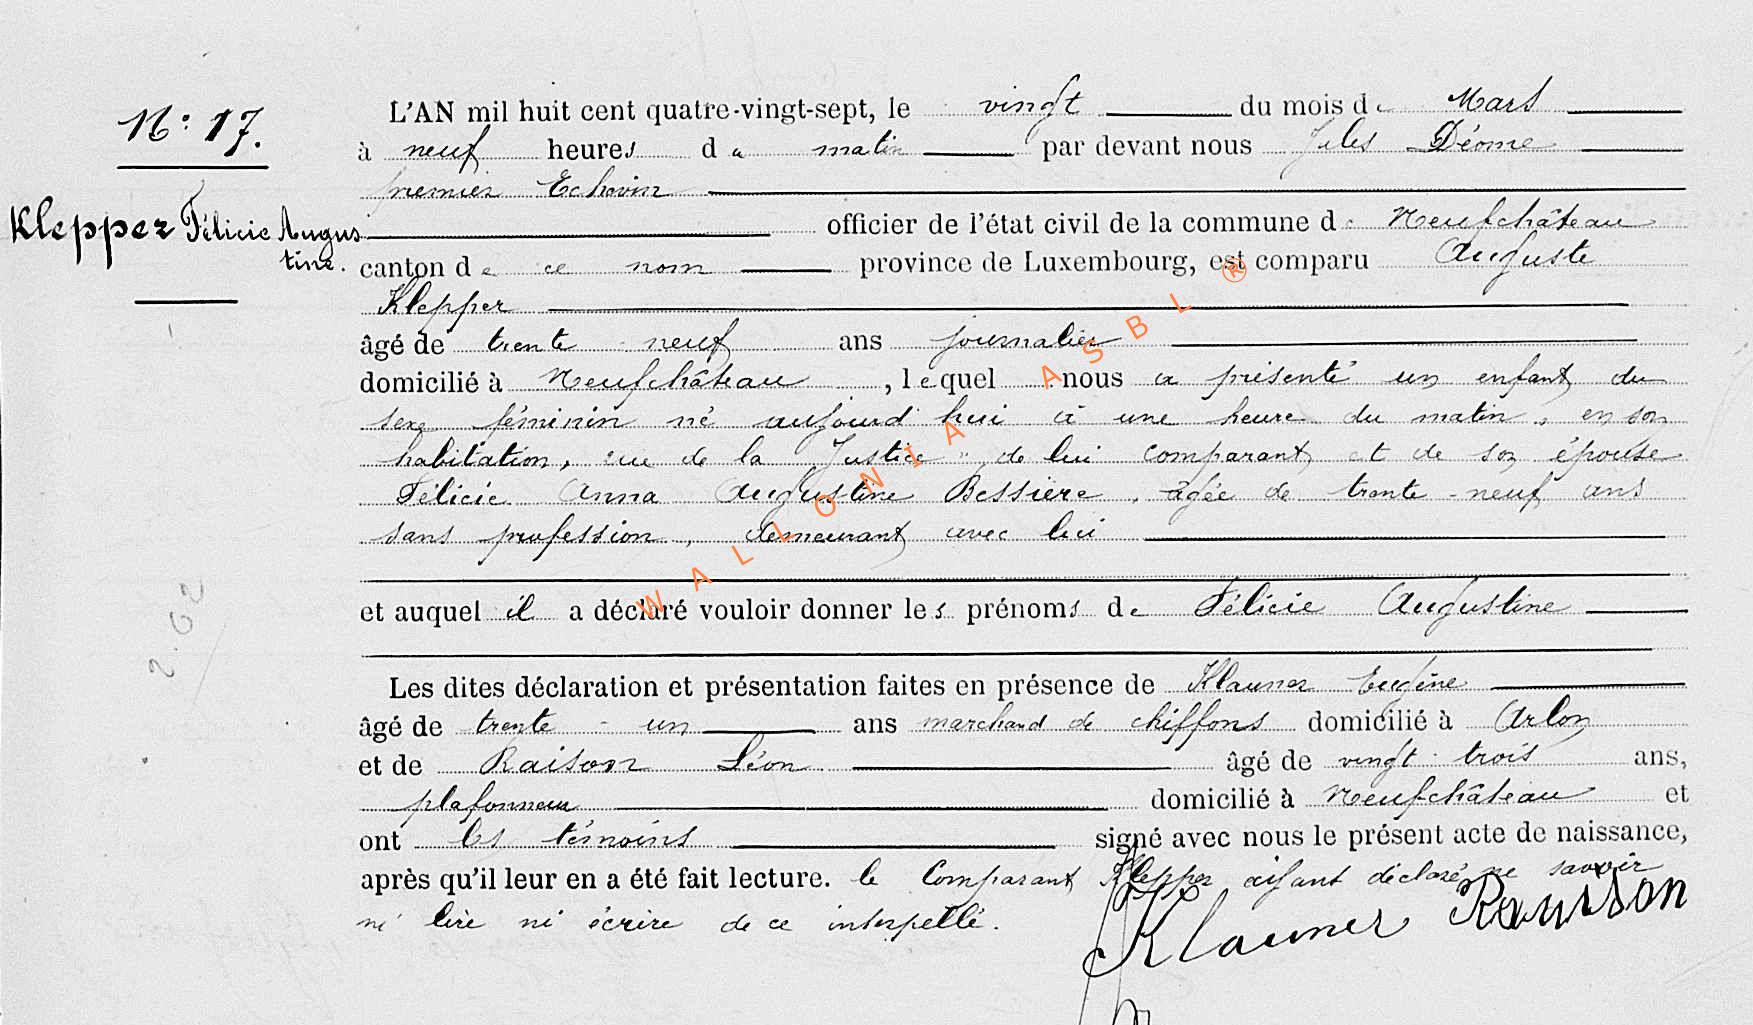 N° 17.
Klepper Félicie Augus
tine.
L'AN mil huit cent quatre-vingt-sept, le vingt du mois de Mars
à neuf heures du matin par devant nous Jules Déome
premier Echevin
officier de l'état civil de la commune de Neufchâteau
canton de ce nom province de Luxembourg, est comparu Auguste
Klepper
âgé de trente neuf ans journalier
domicilié à Neufchâteau, lequel nous a présenté un enfant du
sexe féminin né aujourd'hui à une heure du matin, en son
habitation, rue de la Justice, de lui comparant et de son épouse
Félicie Anna Augustine Bessière, âgée de trente-neuf ans
sans profession, demeurant avec lui
et auquel il a déclaré vouloir donner les prénoms de Félicie Augustine
Les dites déclaration et présentation faites en présence de Klauner Eugène
âgé de trente-un ans marchand de chiffons domicilié à Arlon
et de Raison Léon âgé de vingt-trois ans,
plafonneur domicilié à Neufchâteau et
ont les témoins signé avec nous le présent acte de naissance,
après qu'il leur en a été fait lecture. le Comparant Klepper aifant déclaré ne savoir
ni lire ni écrire de ce interpellé.
Klauner
WALLONIA ASBL ®
2.02